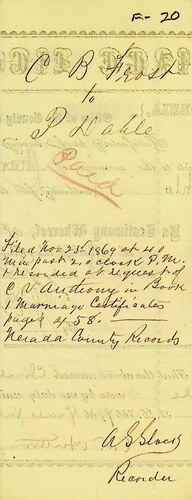 F - 20
C B Frost
to
P. Dahle
Paid
Filed Nov. 23rd 1869 at 40
min past 2, o clock P.M.
& recorded at request of
C V Anthony in Book
1 Marriage Certificates
page 458.
Nevada County Records
Recorder